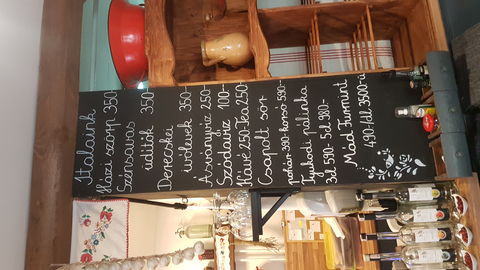 Italaink
Házi szörp 350-
Szénsavas
üdítők 350-
Derecskei
ivólevek 350-
Ásványvíz 250-
Szódavíz 100-
Kávé 250-Tea 250-
Csapolt sör
pohár 390-korsó 590-
Tyukodi pálinka
3cl 590- 5cl 980-
Mád Furmint
490-/dl 3500-ü